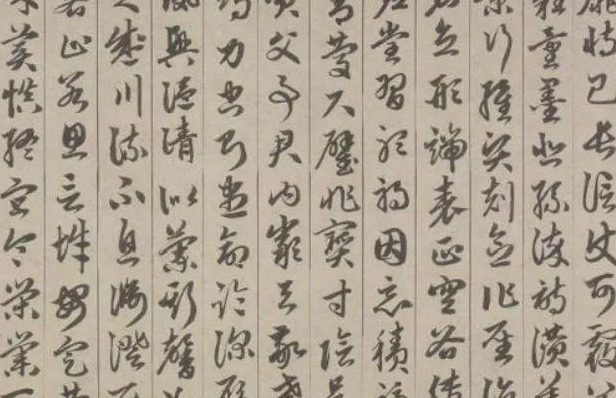 靡恃己長信使可覆
難量墨悲絲染詩讚羔
景行維賢剋念作聖
名立形端表正空谷傳
虛堂習聽禍因忘積福
當慶尺璧非寶寸陰是
資父事君曰嚴與敬孝
竭力忠則盡命臨深履
夙興温清似蘭斯馨
之盛川流不息淵澄取
容止若思言辭安定篤
美慎終宜令榮業